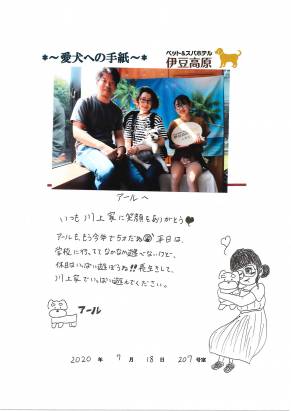 *~愛犬への手紙~*
ペット&スパホテル
伊豆高原
アールへ
いつも川上家に笑顔をありがとう♥
アールも、もう今年で5才だね 平日は、
学校に行っててなかなか遊べないけど、
休日はいっぱい遊ぼうね!!長生きして、
川上家でいっぱい遊んでください。
アール
2020年 9月 18日 207号室